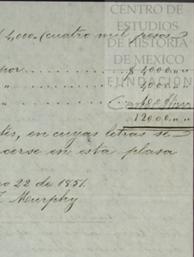 CENTRO DE
ESTUDIOS
DE HISTORIA
DE MEXICO
FUNDACIÓN
4,000 (cuatro mil pesos
por . . . . . . . $ 4000 „ „
" . . . . . . . 4000 „ „
12000 „ „
tes, en cuyas letras se
cerse en esta plasa
o 22 de 1851.
Murphy